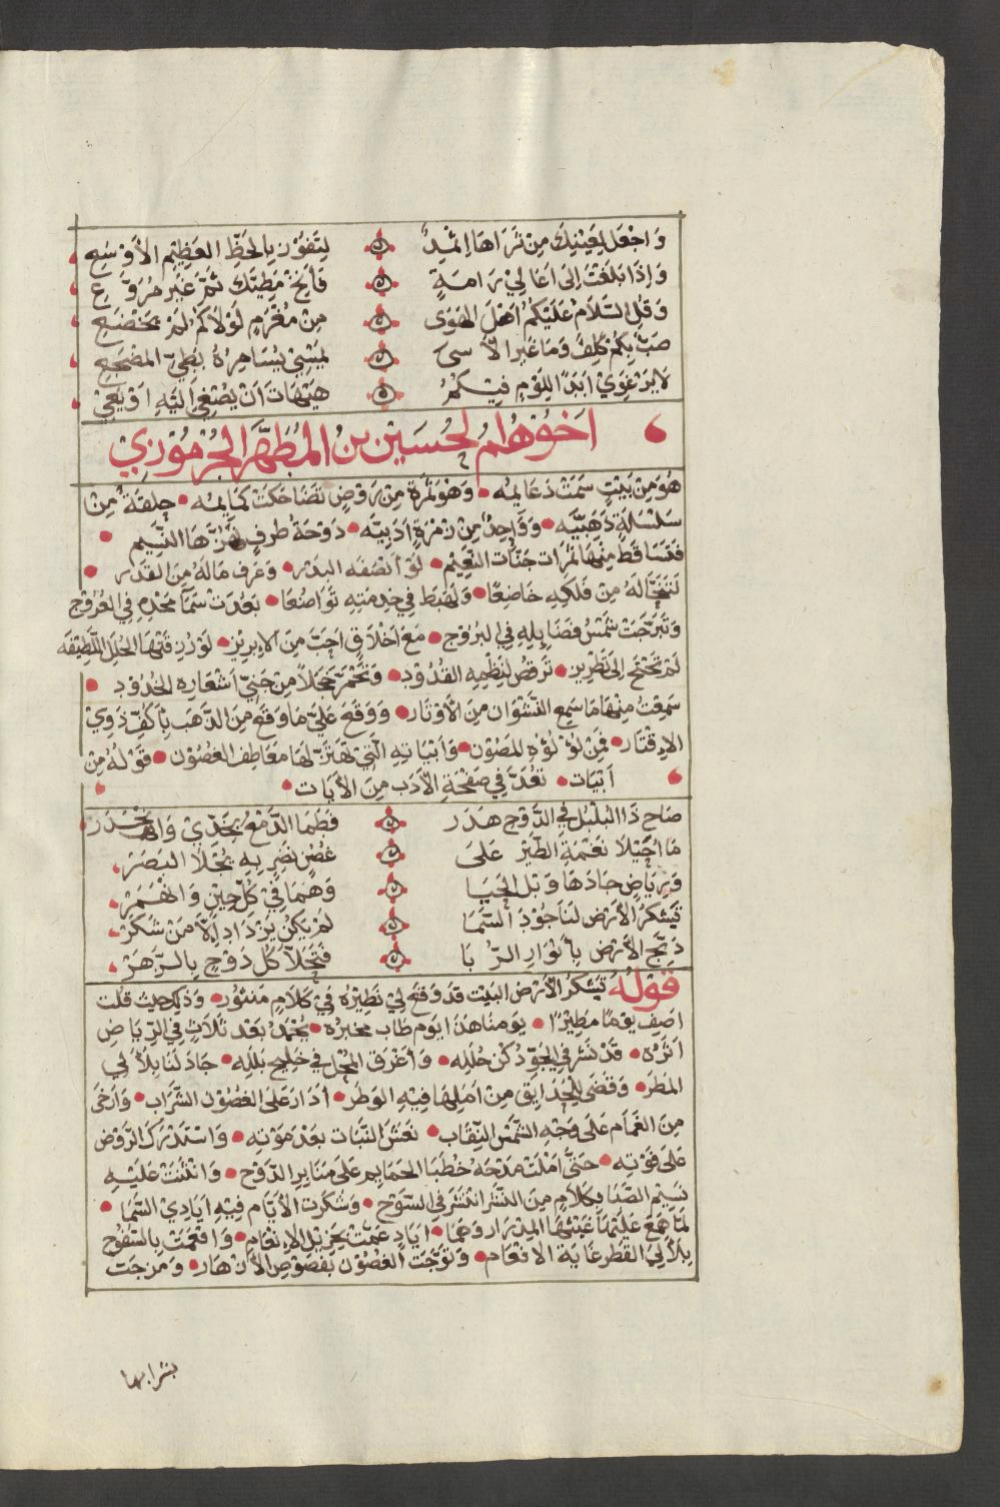 وَاجْعَل لِعَيْنِيكَ مِنْ ثَرَاهَا اِثْمِدٌ لِتَفُوْزَ بِالحَظِّ العَظِيْمِ الأَوْسَعِ
وَاِذَا بَلَغْتَ اِلىَ اعَالِيْ رَامَةٍ فَأَنِخْ مَطِيَّكَ ثَمَّ غَيْر مُرَوَّعِ
وَقُلِ السَّلاَم عَلَيْكُمُ اهْلَ الهَوَى مِنْ مُغْرَمٍ لَوْلاَكُمُ لَمْ يَخْضَعِ
صَبٌّ بِكُمْ كَلِفٌ وَمَا غَيْر الأَسى يُسَاهِرُهُ بُطيِّ المَضْجَعِ
لاَ يَرْعَوِيْ اَبَدًا لِلَوْمٍ فِيْكُمُ هَيْهَاتَ اَنْ يُصْغِي اِلَيْهِ اوْ يَعِيْ
اَخُوْهُ الحُسَيْن بن المُطَهَّر الجُرْمُوْزِي
هُوَ مِنْ بَيْتٍ سَمَتْ دَعَايِمُه وَهُوَ ثَمْرَةٌ مِنْ رَوْضٍ تَضَاحَكَتْ كَمَايِمُه حِلقَةٌ مِنْ
سَلْسَلَةٍ ذَهَبِيَّه وَوَاحِدٌ مِنْ زُمْرَةٍ اَدَبِيَّه دَوْحَةُ طَرفٍ هَزَّهَا النَّسِيْم
فَتَسَاقَطَ مِنْهَا ثَمَرَات جَنَّات النَّعِيْم لَوْ اَنْصَفَه البَدْر وَعَرفَ مَا لَهُ مِنَ القَدْر
لَتَنَحَّا لَهُ مِنْ فَلَكِهِ خَاضِعًا وَلَهَبَطَ فِي خِدمَتِهِ تَوَاضُعًا بَعُدَتْ سَمَآ مَجْدِهِ فِي العُرُوْج
وَتَبَرَّجَتْ شَمْسُ فَضَايِلِهِ فِي البُرُوْج مَعَ اَخْلاَقٍ اَحَبَّ مِنَ الاِبرِيْز لَوْ زُرِفَتْهَا الحُلَل اللَّطِيْفَه
لَمْ تَحْتَجْ اِلَى تَطْرِيز تَرقصُ لِنَظْمِهِ القُدُوْد وَتَحْمَرّ خَجَلاً مِنْ جَنِيّ اَشْعَارِهِ الخُدُوْد
سَمِعْتُ مِنْهَا مَا سَمِعَ النَّشْوَان مِنَ الأَوْتَار وَوَقعَ عَلَيَّ مَا وَقَعَ مِنَ الذَّهَبِ بِاَكُفِّ ذَوِي
الاِقتَار فَمِنْ لُؤْلُؤهِ المَصُوْن وَاَبْيَاتِهِ الَّتِي تَهْتَزّ لَهَا مَعَاطِف الغصُوْن قَوْلهُ مِنْ
اَبْيَات تُعَدّ فِي صَفْحَةِ الأَدَب مِنَ الأَيَات
صَاحِ ذَا البُلْبُل فِي الدَّوْحِ هَدَر فَطَمَا الدَّمْعُ بِخَدِّيْ وَانْحَدَر
مَا اُحَيْلاَ نَغْمَةِ الطَّيْرِ عَلَىَ غُصْنٍ نَضِرٍ بِهِ يَحْلا البَصَر
وَرِيَاضٍ جَادَهَا وَبْل الحَيَا وَهَمَا فِيْ كُلِّ حِيْنٍ وَانْهَمَر
تَيشكرُ الأَرْض لَنَا جُوْدَ السَّمَا لَمْ يَكُنْ يَزْدَاد اِلاَّ مَنْ شَكَر
دَبَّجَ الأَرْض بِأَنْوَارِ الرُّبَا فَتَحَلاَّ كُلّ دَوْحٍ بِالزَّهَر
قَوْلُهُ تَيشكرُ الأَرْض البَيْت قَدْ وَقَعَ لِيْ نَظِيْرُهُ فِيْ كَلاَمٍ مَنْثُوْر وَذَلِكَ حَيْثُ قُلت
اصف يَوْمًا مَطِيْرًا يَوْمنَا هَذَا يوَم طَابَ مخبَرُه يُحْمَدُ بَعْدَ ثَلاَثٍ فِي الرِّيَاضِ
اَثَرُه قَدْ نَشَرَ فِي الجَوِّ دُكْنَ حُلَلِه وَأَغْرَقَ المَحْل فِي خَلِيْجِ بَلَلِه جَادَ لَنَا بِلاَلِي
المَطَر وَقَضَى لِلحَدَايِق مِنْ اَمَلِهَا فِيْهِ الوَطَر أَدَارَ عَلَى الغُصُوْن الشَّرَاب وَأَرخَى
مِنَ الغَمَام عَلَى وَجْهِ الشَّمْسِ النِّقَاب نَعَشَ النَّبَات بَعْدَ مَوْتِه وَاسْتَدْرَكَ الرَّوْض
عَلَى فَوْتِه حَتَّى اَمْلَتْ مَدْحَهُ خُطَبَا الحَمَايِم عَلَى مَنَابِرِ الدَّوْح وَاثْنَتْ عَلَيْهِ
نَسِيْم الصَّبَا بِكَلاَمٍ مِنَ النَّشْر انْتَشَرَ فِي السَّوْح وَشَكَرت الأَيَّام فِيْهِ ايَادِيْ السَّمَا
لَمَّا هَمَعَ عَلَيْهَا غَيْثهَا المِدْرَار وَهَمَا ايَادٍ عَمَّتْ بِجَزِيْل الاِنْعَام وَافْعَمَتْ بِالسُّفُوْح
بِلأَلِي القَطْر غَايَة الانْعَام وَتَوَّجَت الغُصُوْن بِفُصُوْصِ الأَزهَار وَمَزَجَت
بشرابها